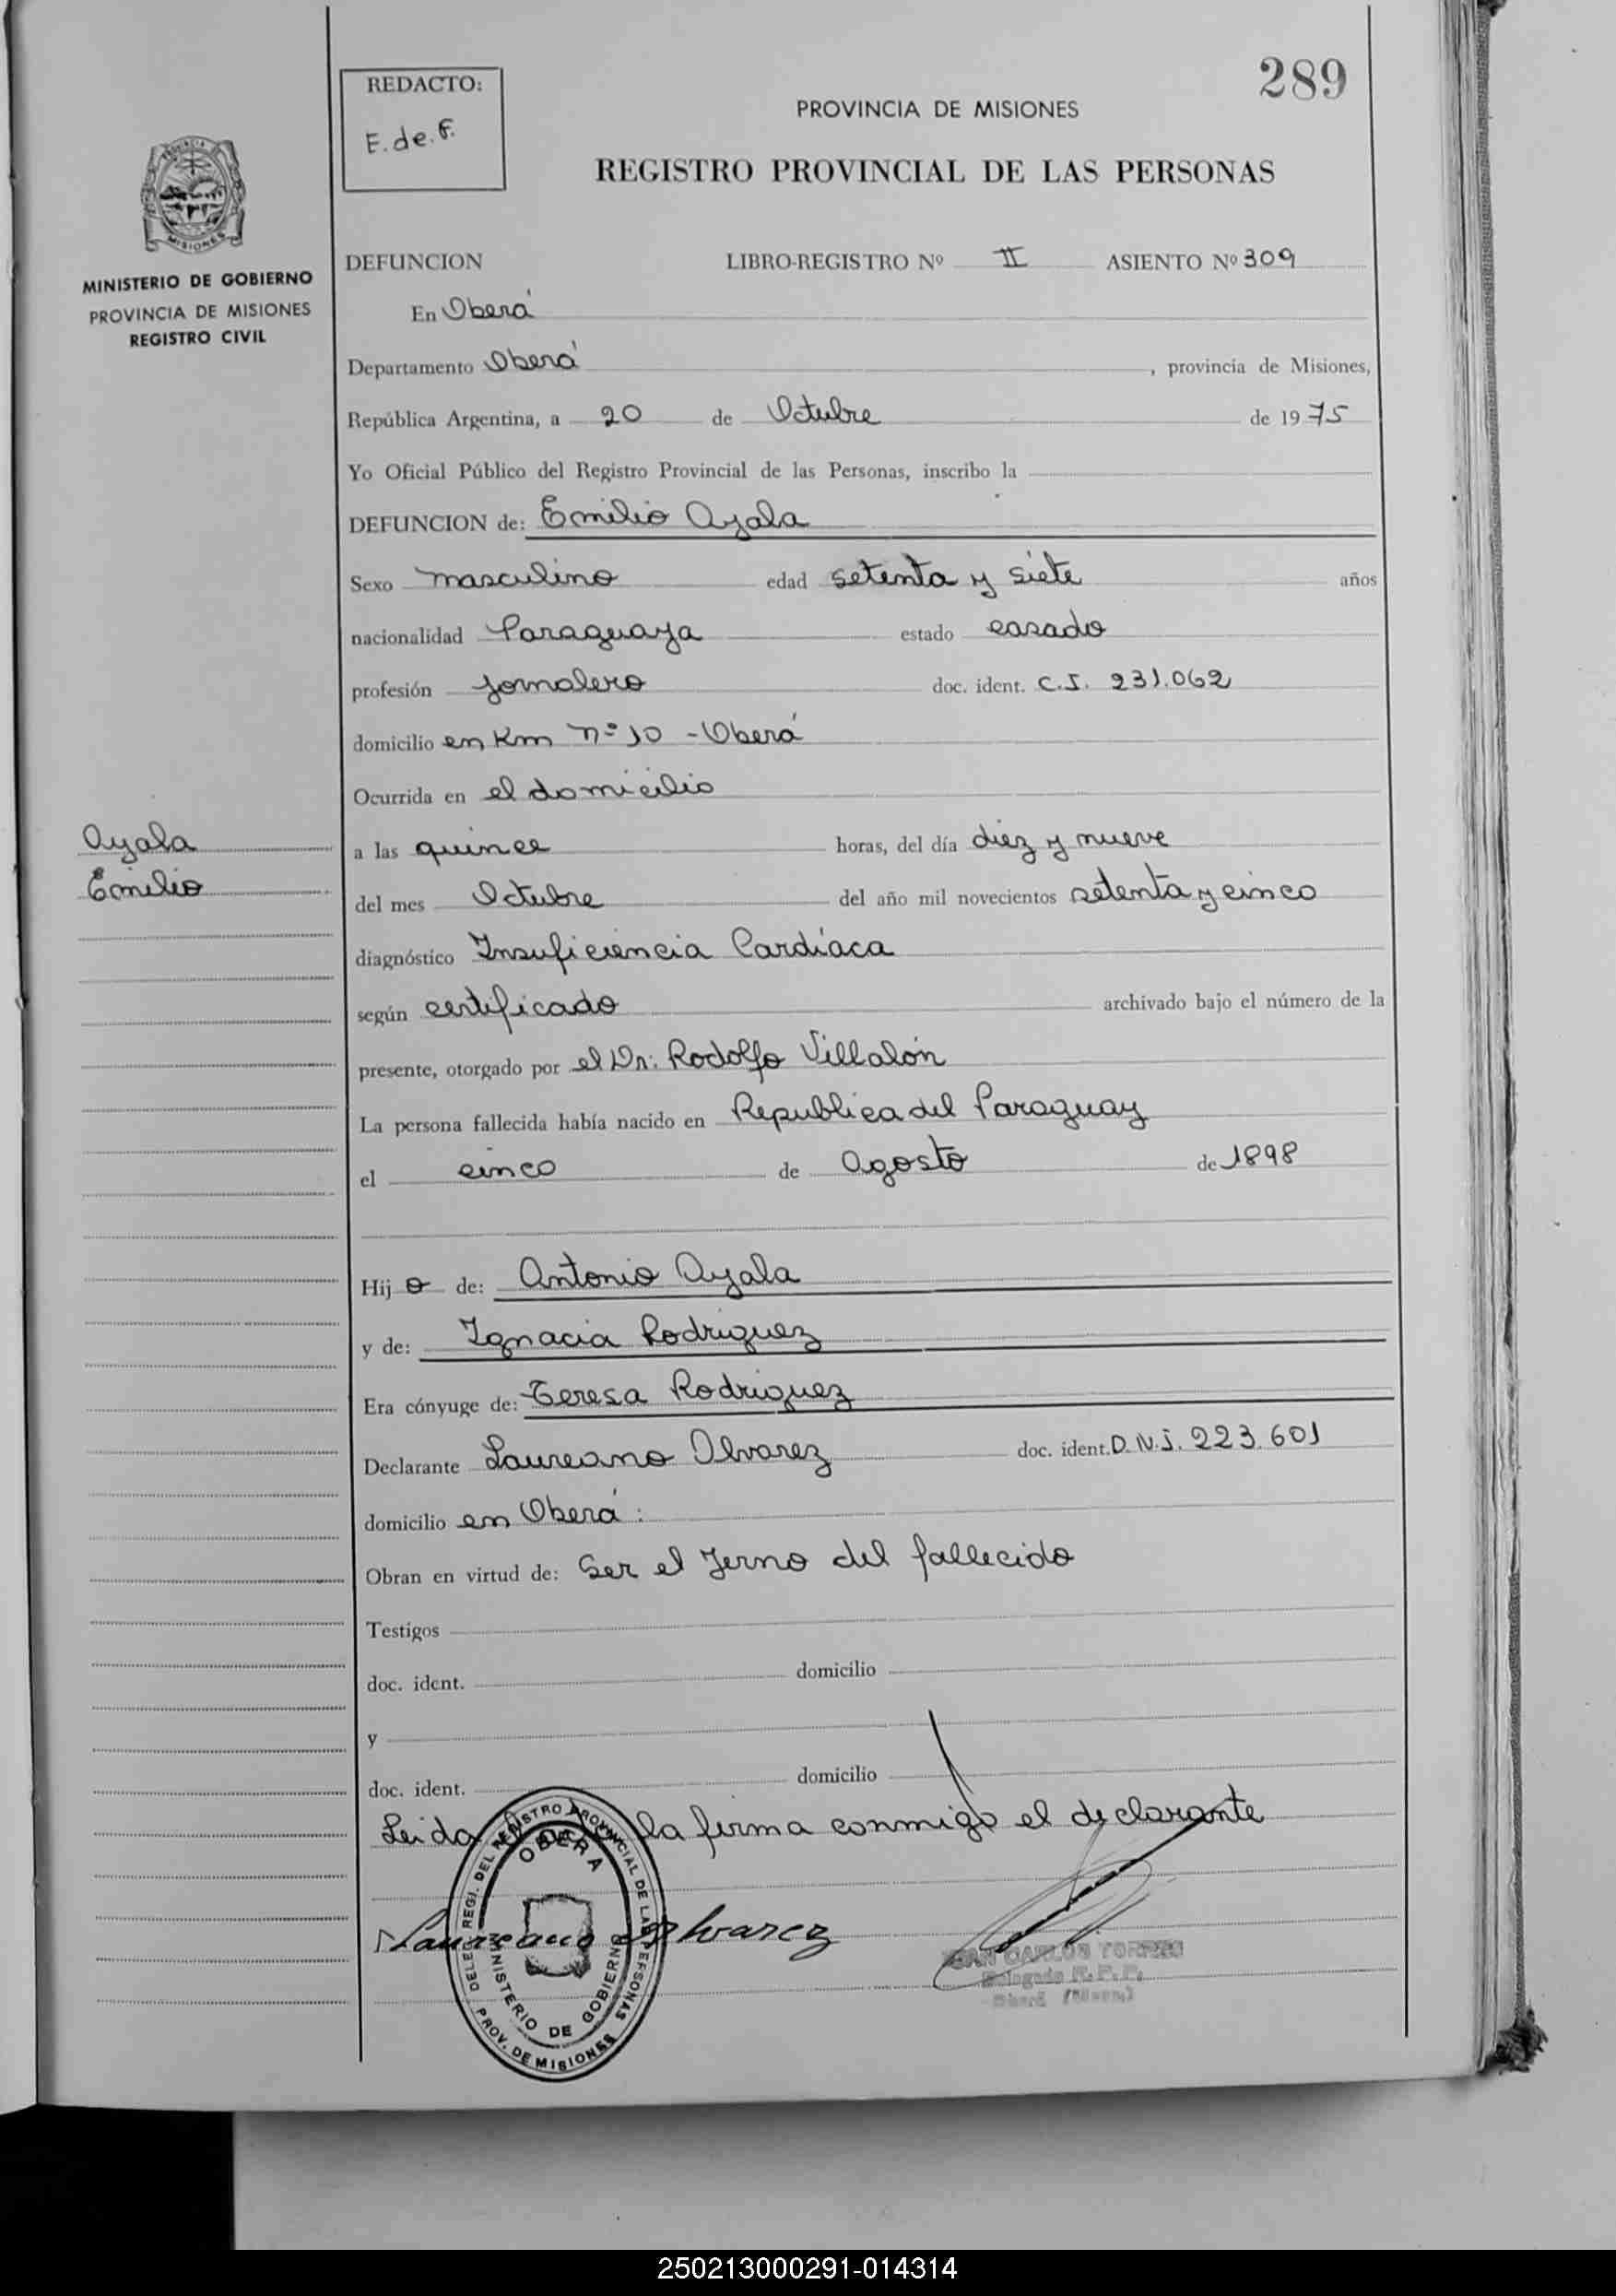 289
REDACTO:
E. de. F.
PROVINCIA DE MISIONES
REGISTRO PROVINCIAL DE LAS PERSONAS
MISIONES
MINISTERIO DE GOBIERNO
PROVINCIA DE MISIONES
REGISTRO CIVIL
DEFUNCION LIBRO-REGISTRO Nº II ASIENTO Nº 309
En Oberá
Departamento Oberá, provincia de Misiones,
República Argentina, a 20 de Octubre de 1975
Yo Oficial Público del Registro Provincial de las Personas, inscribo la
DEFUNCION de: Emilio Ayala
Sexo masculino edad setenta y siete años
nacionalidad Paraguaya estado casado
profesión Jornalero doc. ident. C.I. 231.062
domicilio en Km nº 10 - Oberá
Ocurrida en el domicilio
Ayala
Emilio
a las quince horas, del día diez y nueve
del mes Octubre del año mil novecientos setenta y cinco
diagnóstico Insuficiencia Cardíaca
según certificado archivado bajo el número de la
presente, otorgado por el Dr: Rodolfo Villalón
La persona fallecida había nacido en Republica del Paraguay
el cinco de Agosto de 1898
Hijo de: Antonio Ayala
y de: Ignacia Rodriguez
Era cónyuge de: Teresa Rodriguez
Declarante Laureano Olvarez doc. ident. D.N.I. 223.601
domicilio en Oberá:
Obran en virtud de: Ser el Yerno del fallecido
Testigos
doc. ident. domicilio
y
doc. ident. domicilio
Leida la firma conmigo el declarante
DELEG. REGI. DEL REGISTRO PROVINCIAL DE LAS PERSONAS
OBERA
MINISTERIO DE GOBIERNO
PROV. DE MISIONES
Laureano Alvarez
JUAN CARLOS TORRES
Delegado R.P.P.
Oberá (Misiones)
250213000291-014314